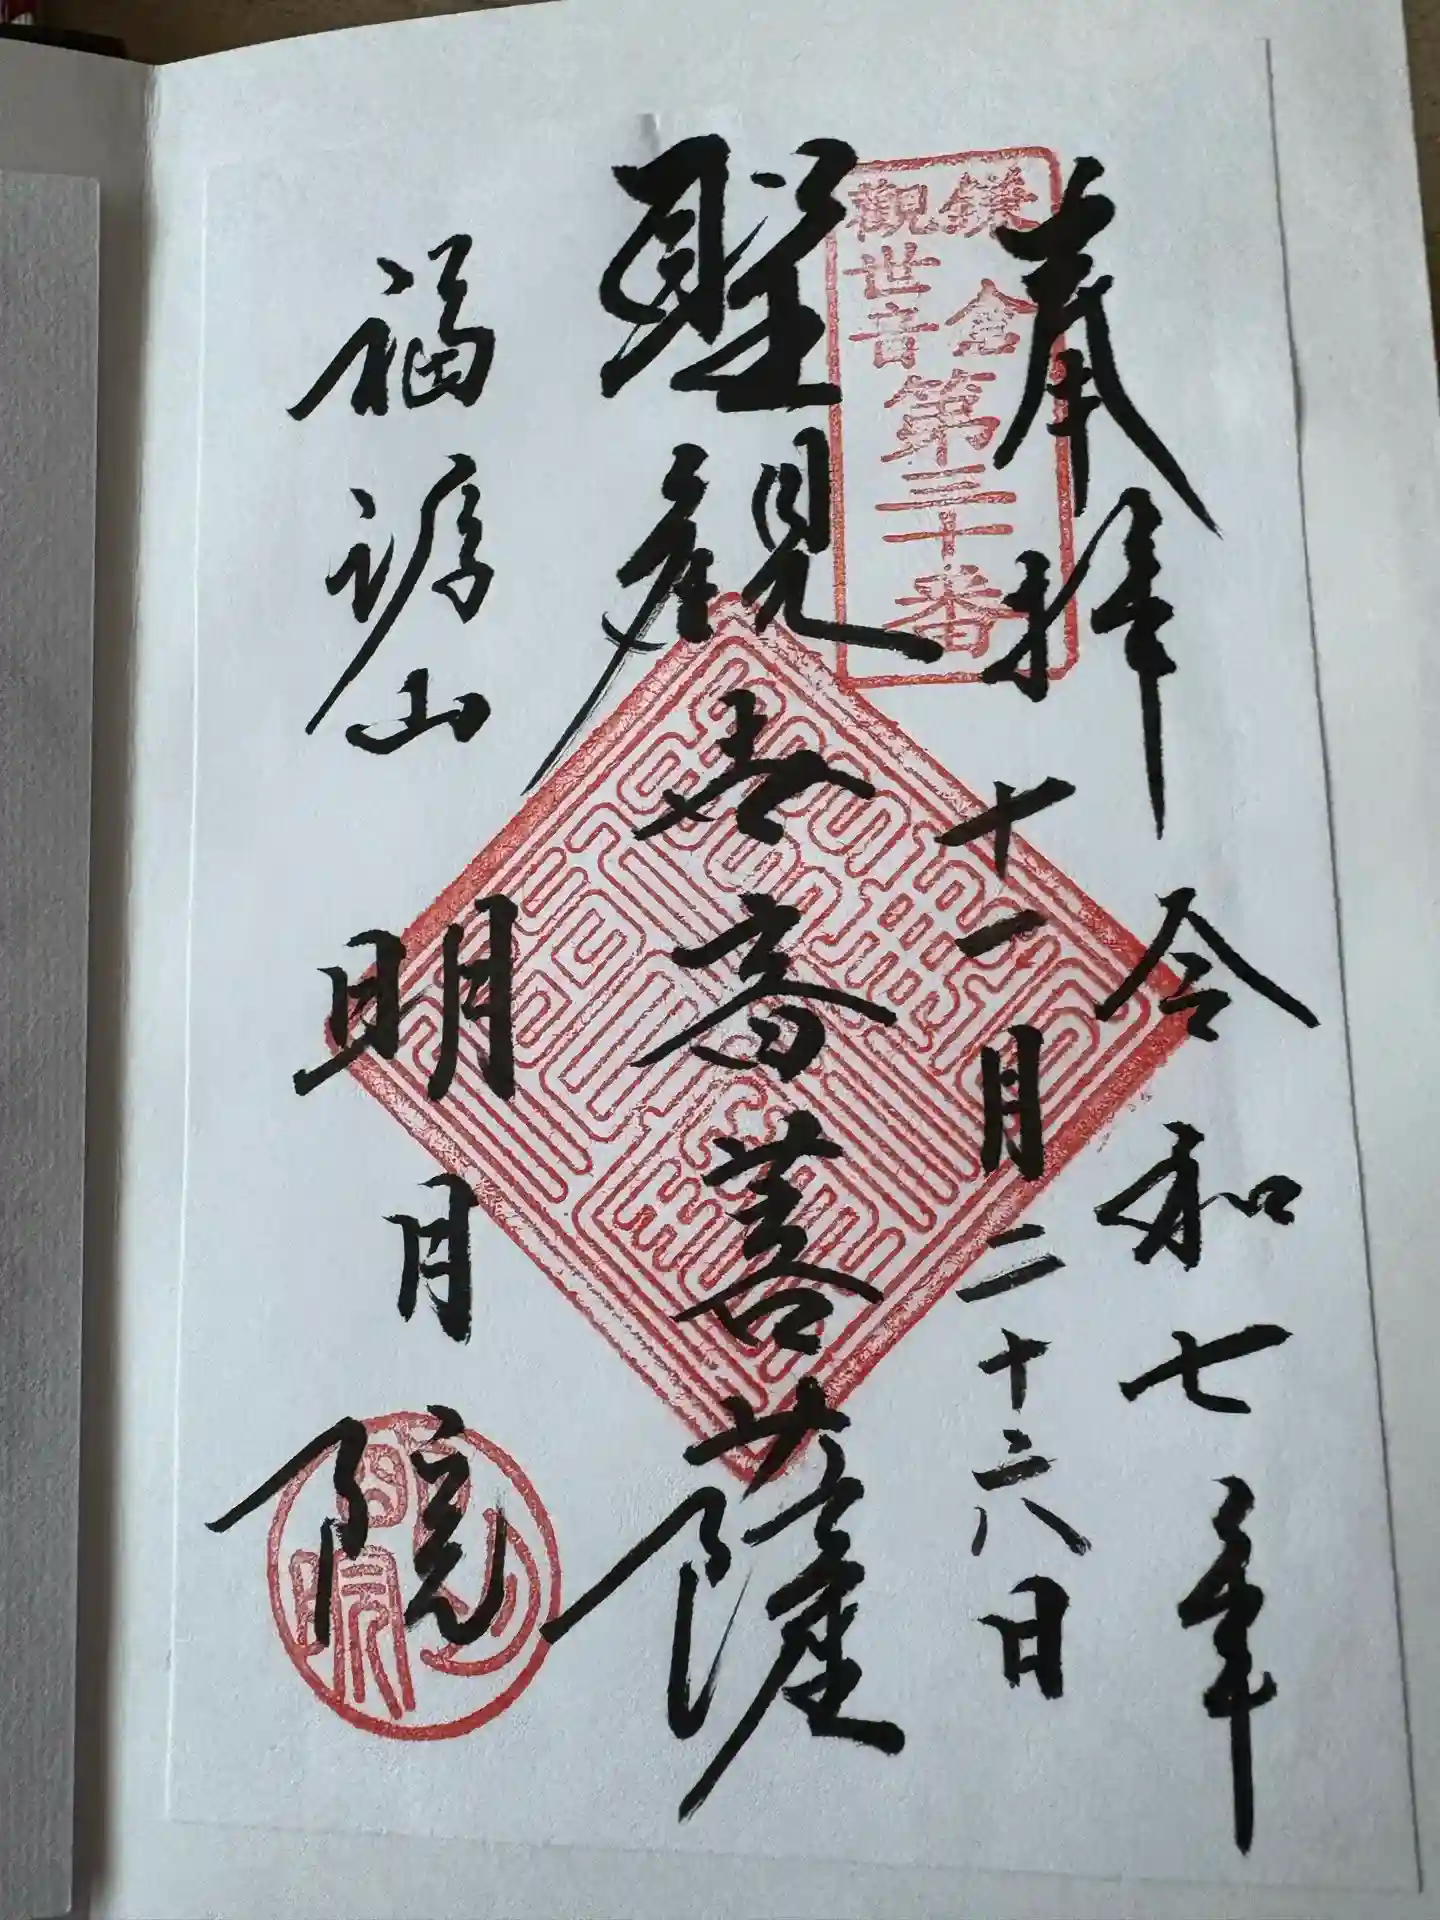 奉拝
令和七年
十一月二十六日
鎌倉
觀世音
第三十番
聖観世音菩薩
福源山
明月院